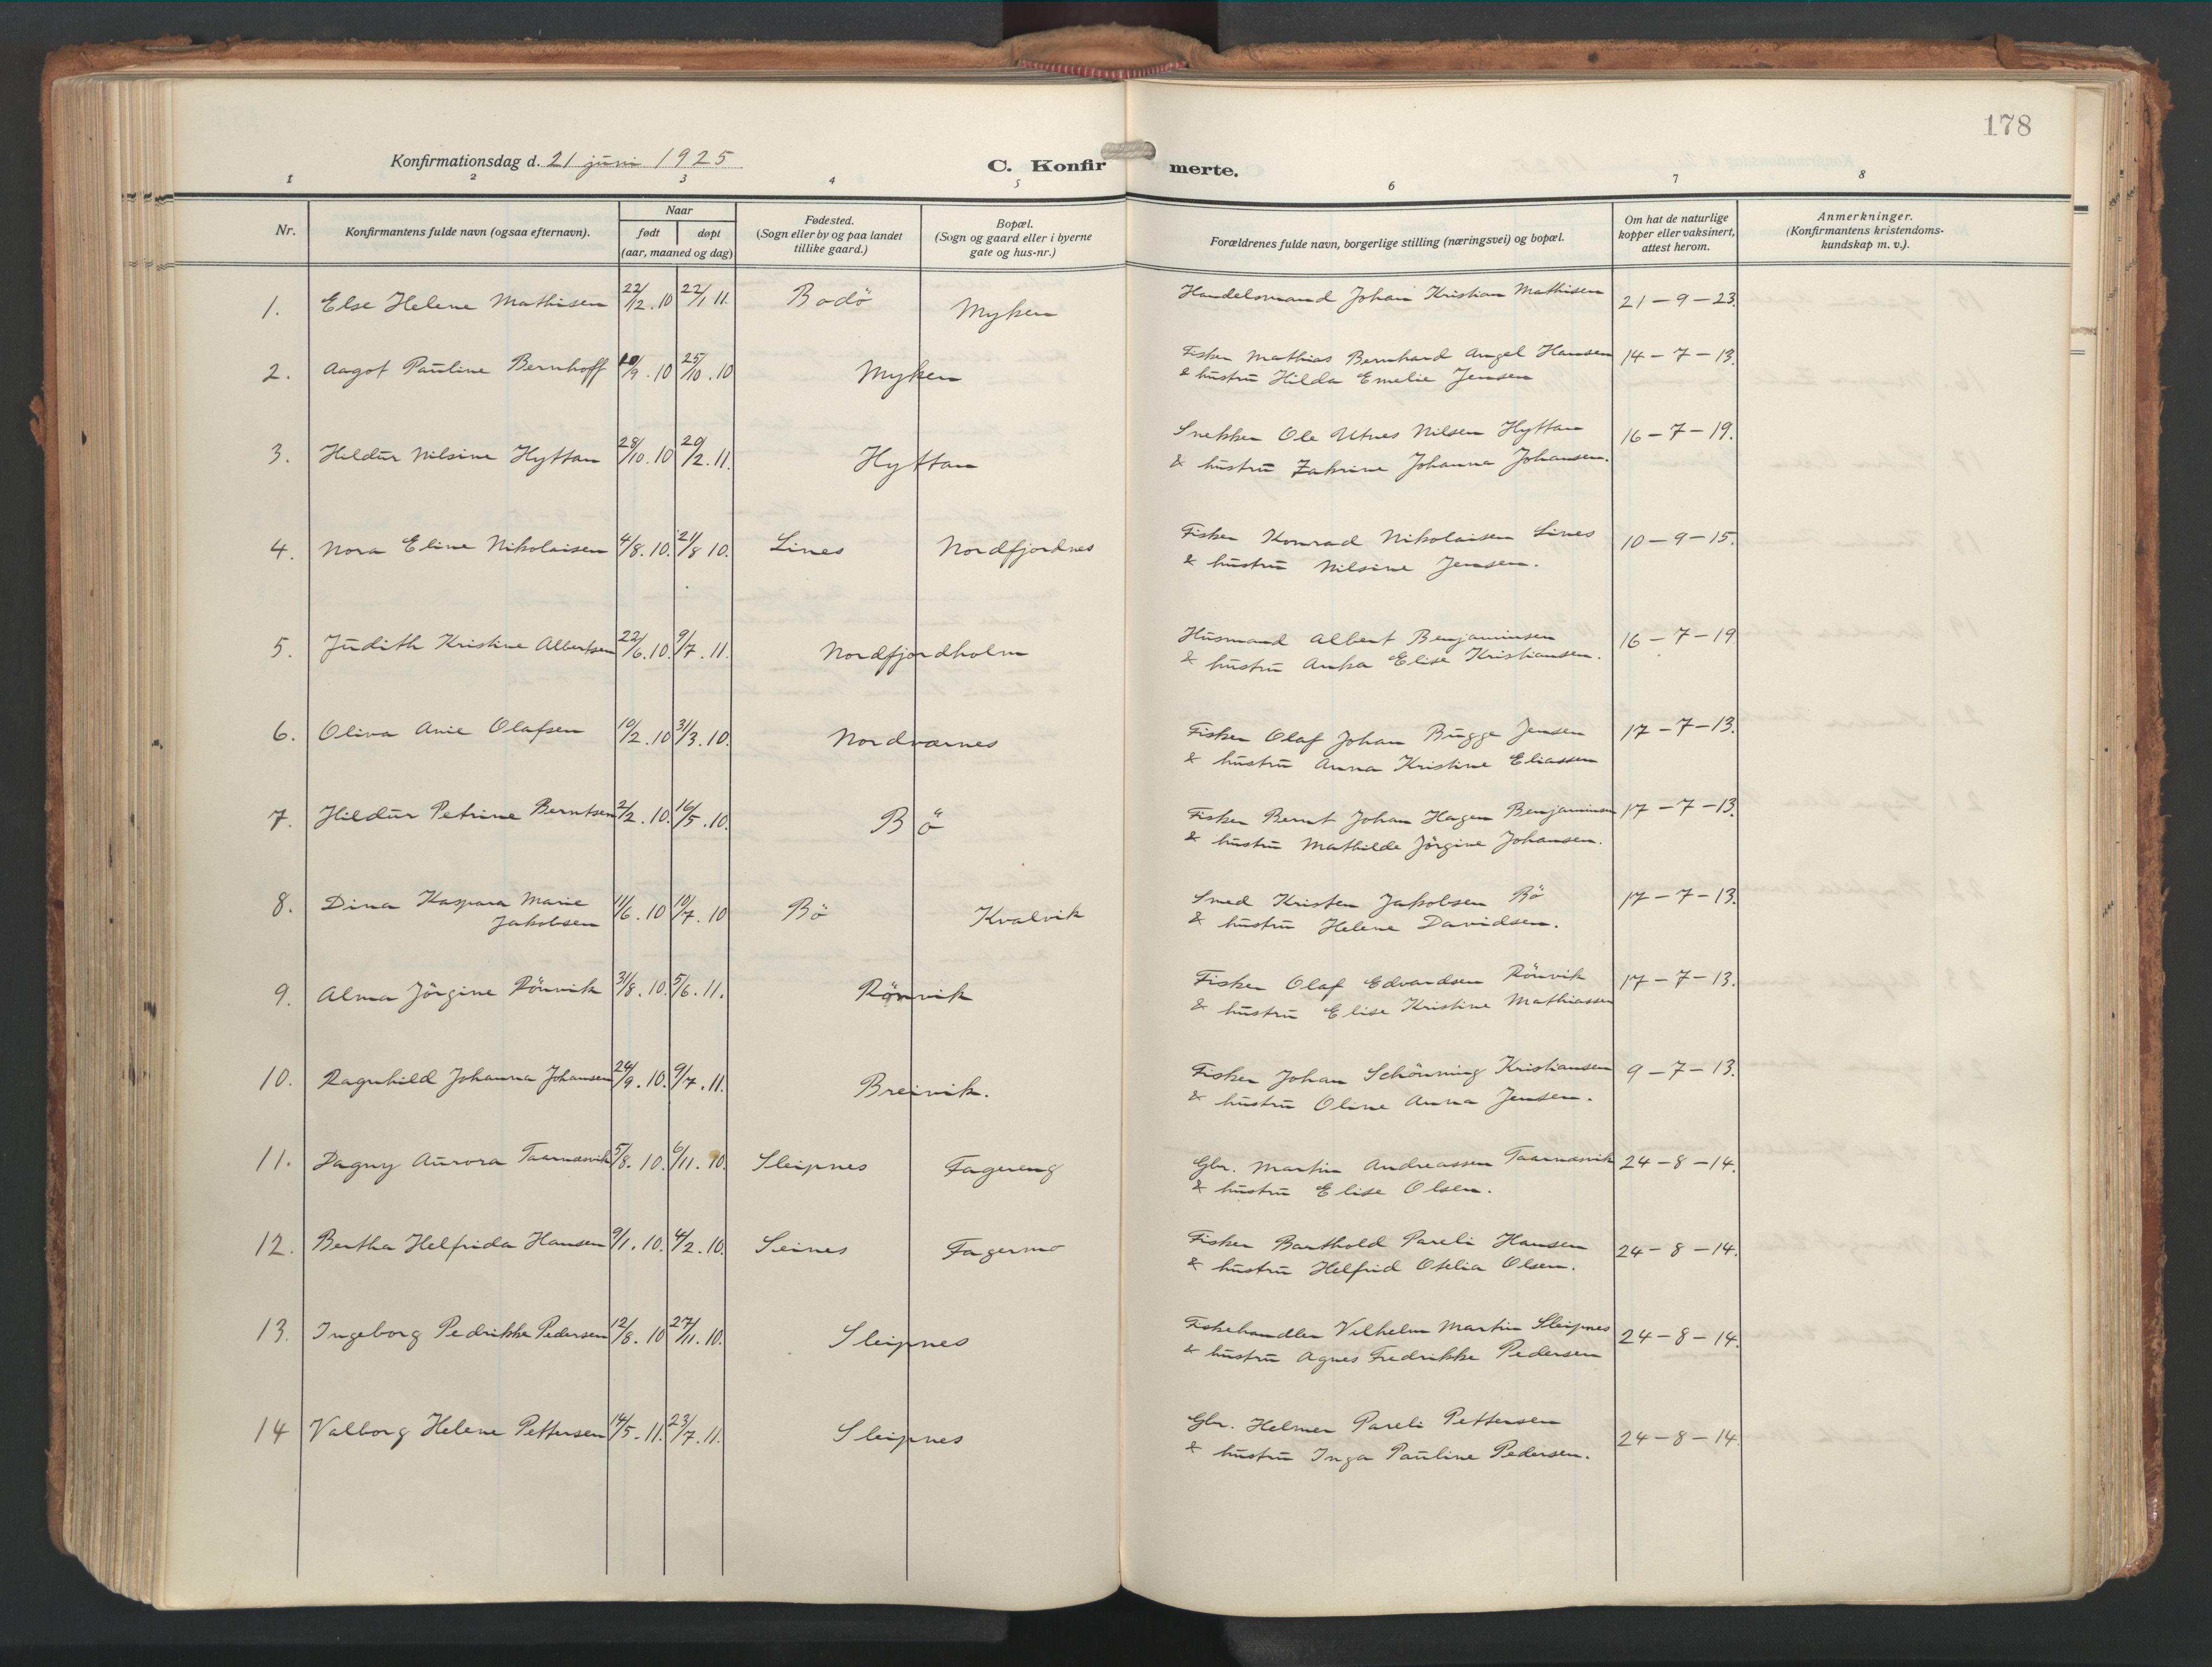 178
Konfirmationsdag d. 21 juni 1925
C. Konfirmerte.
1 2 3 4 5 6 7 8
Nr.
Konfirmantens fulde navn (ogsaa efternavn).
Naar
født døpt
(aar, maaned og dag)
Fødested.
(Sogn eller by og paa landet
tillike gaard.)
Bopæl.
(Sogn og gaard eller i byerne
gate og hus-nr.)
Forældrenes fulde navn, borgerlige stilling (næringsvei) og bopæl.
Om hat de naturlige
kopper eller vaksinert,
attest herom.
Anmerkninger.
(Konfirmantens kristendoms-
kundskap m. v.).
1. Else Helene Mathisen 22/12.10 22/1 11. Bodö Myken Handelsmand Johan Kristian Mathisen 21-9-23.
2. Aagot Pauline Bernhoff /9.10 25/10.10 Myken Fisker Mathias Bernhard Angel Hansen 14-7-13.
& hustru Hilda Emelie Jensen
3. Hildur Nilsine Hyttan 28/10.10 20/2.11. Hyttan Snekker Ole Utnes Nilsen Hyttan 16-7-19.
& hustru Zakrine Johanna Johansen.
4. Nora Eline Nikolaisen 4/8.10. 21/8 10. Lines Nordfjordnes Fisker Konrad Nikolaisen Lines 10-9-15.
& hustru Nilsine Jensen.
5. Judith Kristine Albertsen 22/6.10. 9/7.11. Nordfjordholm Husmand Albert Benjaminsen 16-7-19
& hustru Anka Elise Kristiansen.
6. Oliva Anie Olafsen 10/2.10 31/3.10. Nordvarnes Fisker Olaf Johan Bugge Jensen 17-7-13.
& hustru Anna Kristine Eliassen
7. Hildur Petrine Berntsen 2/2.10. 16/5.10. Bö Fisker Bernt Johan Hagen Benjaminsen 17-7-13.
& hustru Mathilde Jörgine Johansen.
8. Dina Kaspara Marie
Jakobsen 11/6.10 10/7.10 Bö Kvalvik Smed Kristen Jakobsen Bö 17-7-13.
& hustru Helene Davidsen.
9. Alma Jörgine Rönvik 31/8.10. 5/6.11. Rönvik Fisker Olaf Edvardsen Rönvik 17-7-13.
& hustru Elise Kristine Mathiassen
10. Ragnhild Johanna Johansen 24/9.10. 9/7.11. Breivik. Fisker Johan Schönning Kristiansen 9-7-13.
& hustru Oline Anna Jensen.
11. Dagny Aurora Taarnæsvik 5/8.10. 6/11.10. Sleipnes Fagereng Gbr. Martin Andreassen Taarnæsvik 24-8-14.
& hustru Elise Olsen.
12. Bertha Helfrida Hansen 9/1.10. 4/2.10. Seines Fagermo Fisker Barthold Pareli Hansen 24-8-14.
& hustru Helfrid Otelia Olsen.
13. Ingeborg Pedrikke Pedersen 12/8.10 27/11.10. Sleipnes Fiskehandler Vilhelm Martin Sleipnes 24-8-14.
& hustru Agnes Fredrikke Pedersen
14 Valborg Helene Pettersen 14/5.11. 23/7.11. Sleipnes Gbr. Helmer Pareli Pettersen 24-8-14.
& hustru Inga Pauline Pedersen.